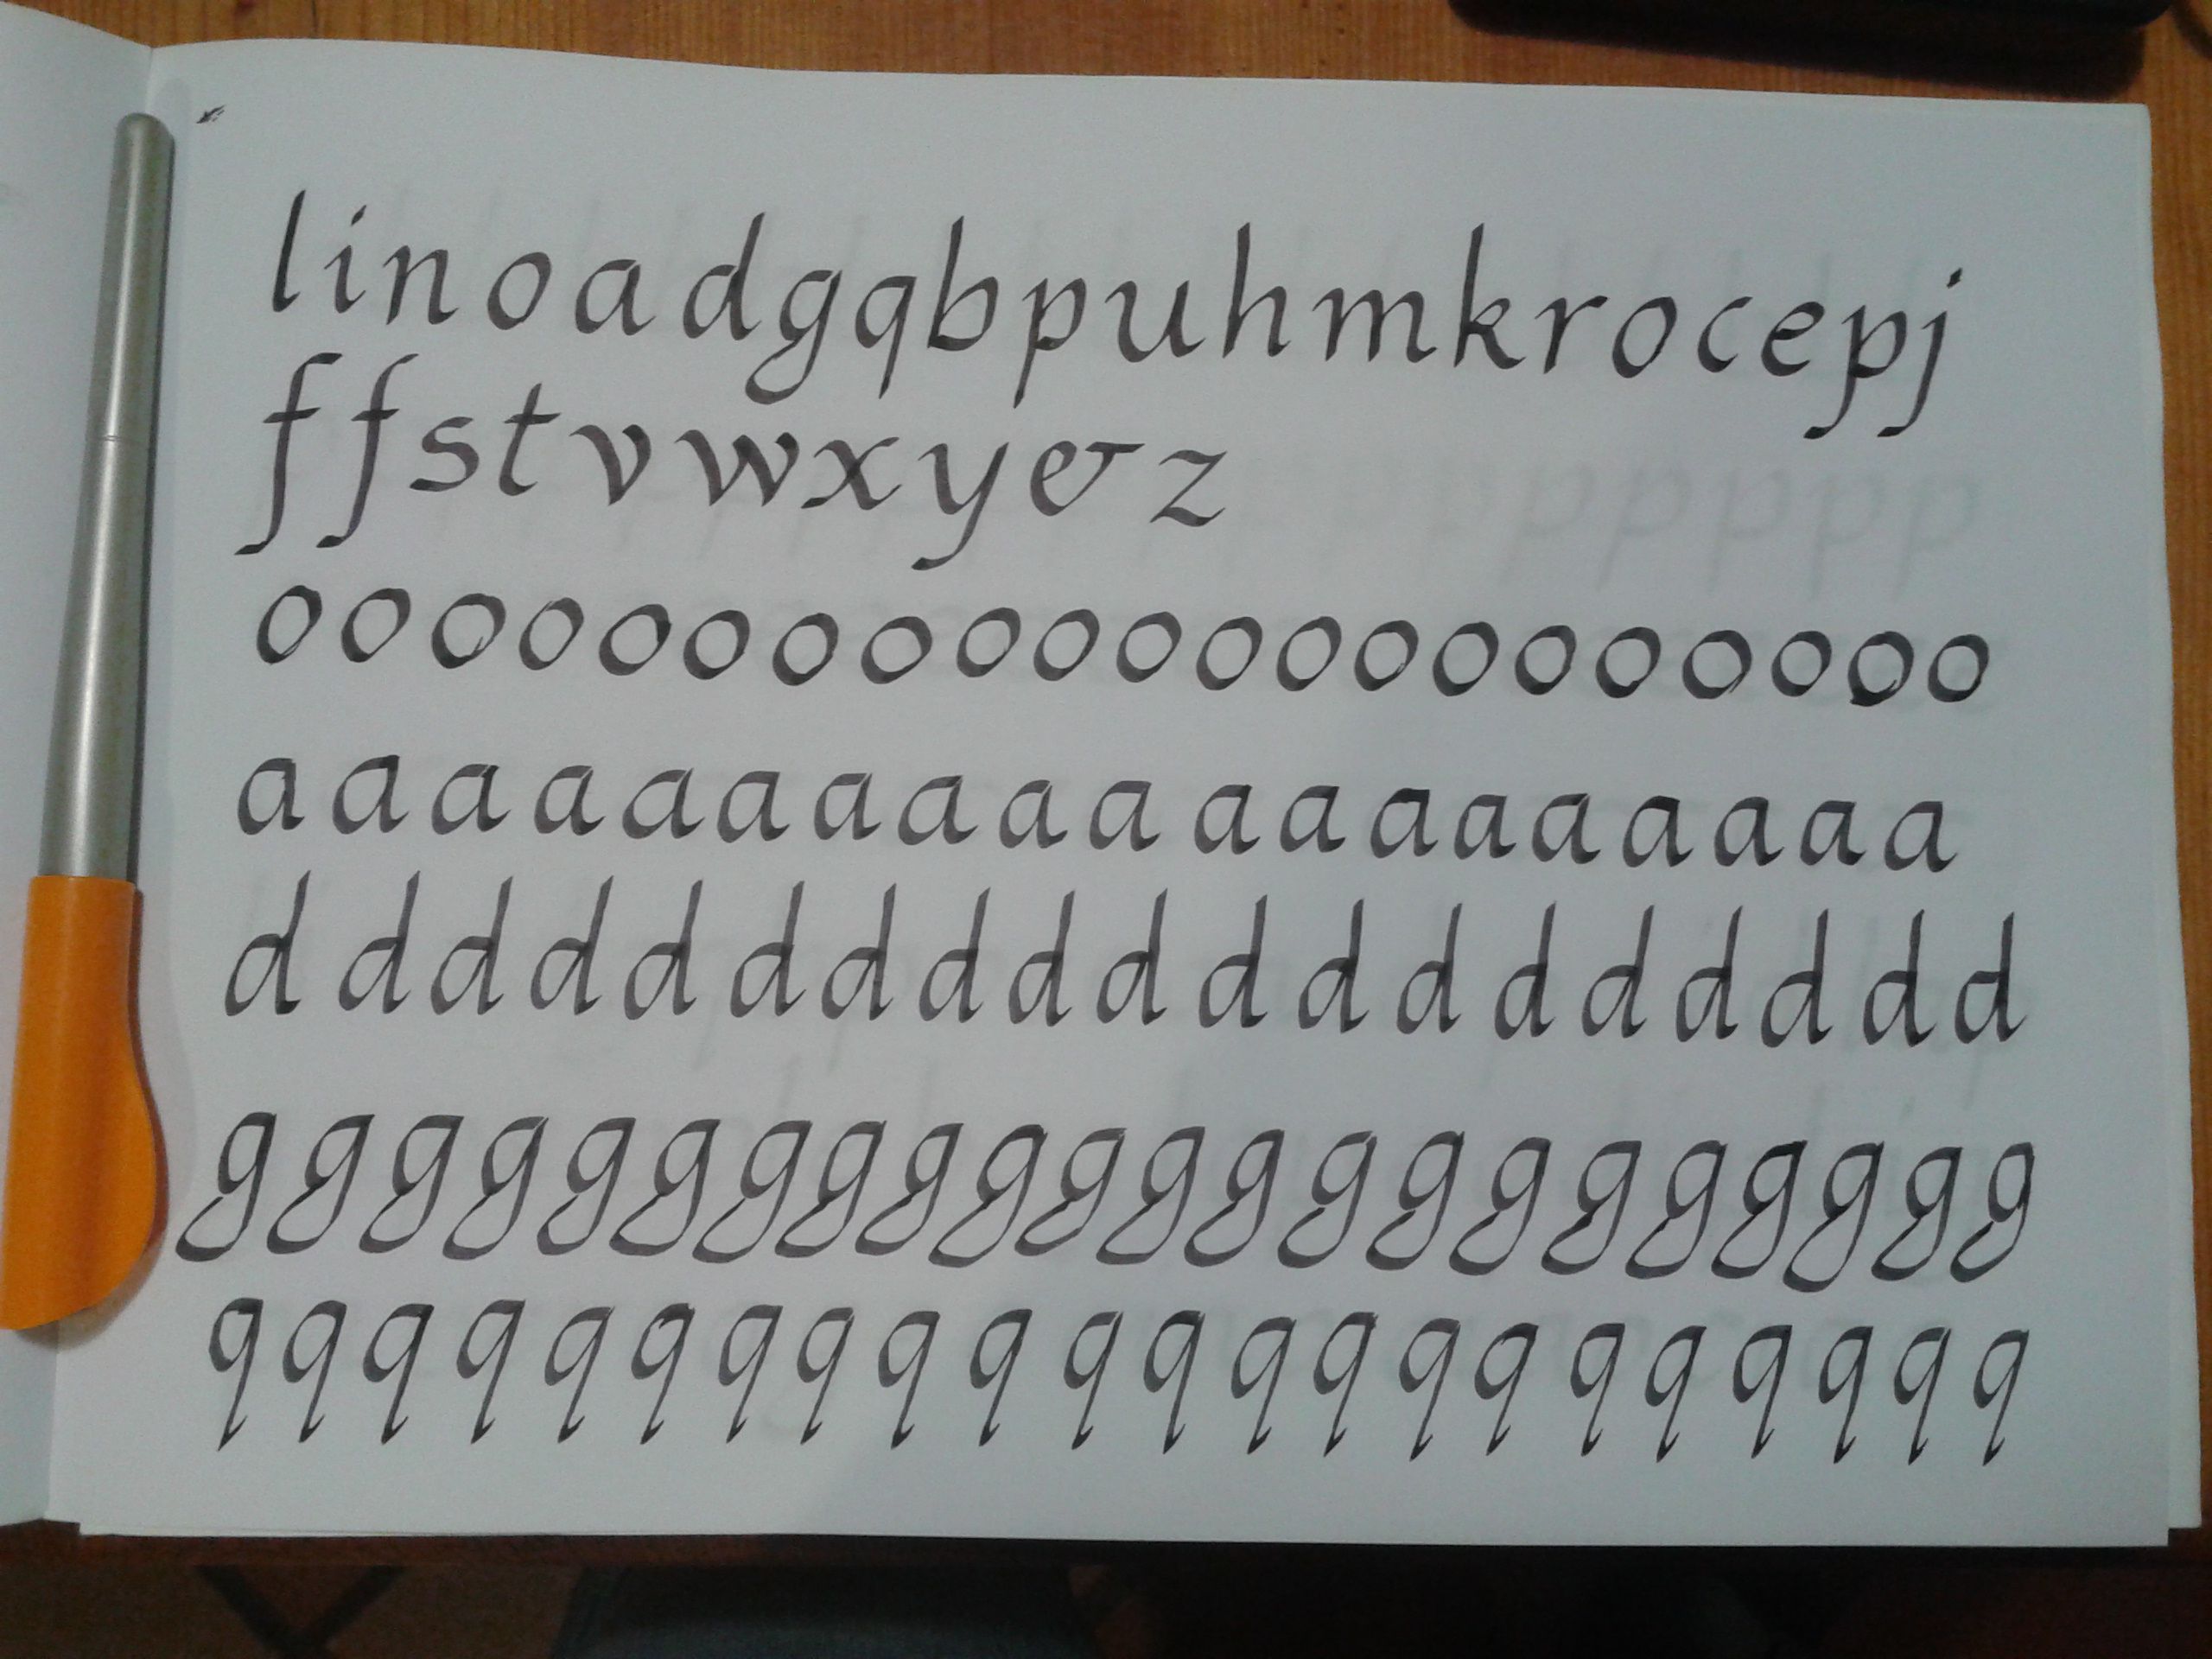 linoadgqbpuhmkrocepj
ffstvwxy&z
ooooooooooooooooooooo
aaaaaaaaaaaaaaaaaaa
ddddddddddddddddddd
gggggggggggggggggggggg
qqqqqqqqqqqqqqqqqqqqqq